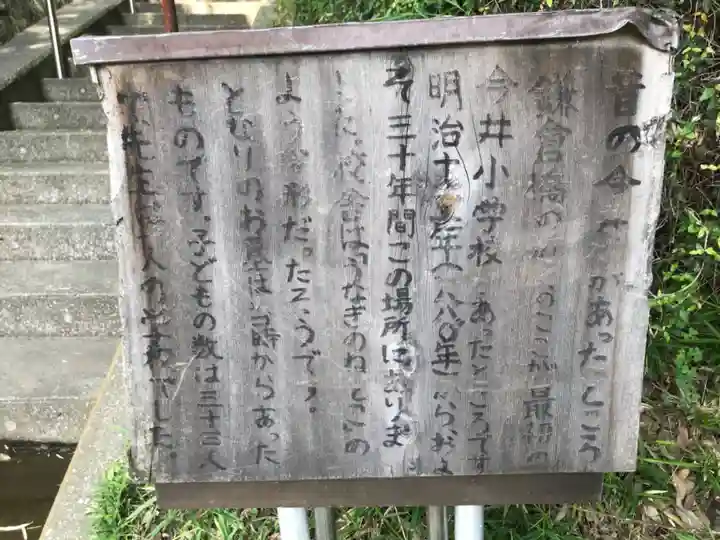 昔の今井があったところ
鎌倉橋の ここが最初の
今井小学校 あったところです
明治十三年(一八八〇年)から、およ
そ三十年間この場所にありま
した。校舎は「うなぎのねどこ」の
よう な形だったそうです。
となりのお は当時からあった
ものです。子どもの数は三十三人
で、先生 人の学校でした。